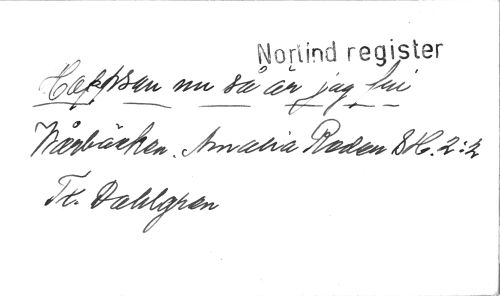 Norlind register
Hoppsan nu så är jag fri
Vårbäcken. Amalia Roden BH. 2:2
Tr. Dahlgren